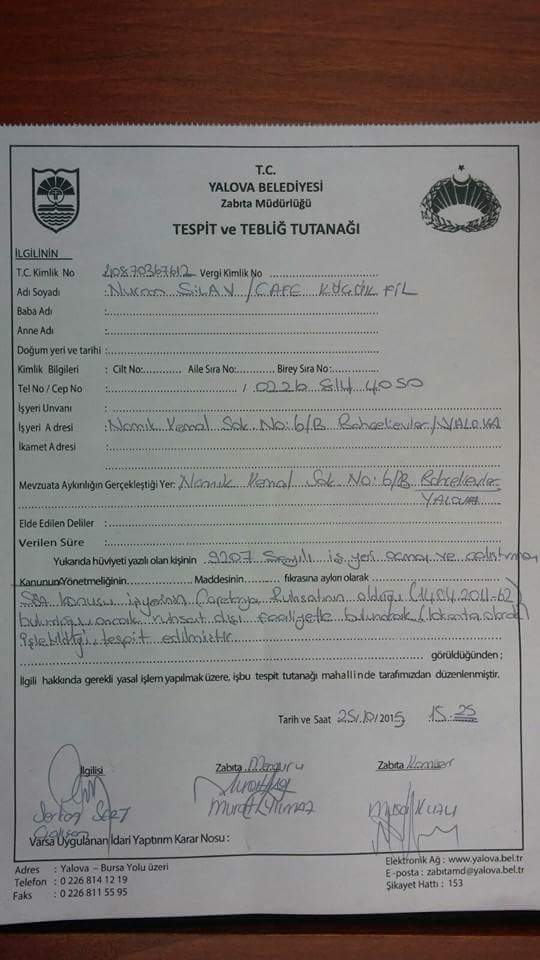 T.C.
YALOVA BELEDİYESİ
Zabıta Müdürlüğü
TESPİT ve TEBLİĞ TUTANAĞI
İLGİLİNİN
T.C. Kimlik No 40870367612 Vergi Kimlik No
Adı Soyadı : SİLAV / CAFE KÜÇÜK FİL
Baba Adı :
Anne Adı :
Doğum yeri ve tarihi :
Kimlik Bilgileri : Cilt No: Aile Sıra No: Birey Sıra No:
Tel No / Cep No : / 0226 814 4050
İşyeri Unvanı :
İşyeri Adresi : Namık Kemal Sok No: 6/B Bahçelievler/YALOVA
İkamet Adresi :
Mevzuata Aykırılığın Gerçekleştiği Yer: Namık Kemal Sok No: 6/B Bahçelievler
YALOVA
Elde Edilen Deliler :
Verilen Süre :
Yukarıda hüviyeti yazılı olan kişinin 9207 Sayılı iş yeri açma ve çalıştırma
Kanunun/Yönetmeliğinin Maddesinin fıkrasına aykırı olarak
Söz konusu işyerinin Cafeterya Ruhsatının olduğu (14.04.2011-62)
bulunduğu ancak ruhsat dışı faaliyette bulunarak (lokanta olarak
işlebildiği tespit edilmiştir
görüldüğünden ;
İlgili hakkında gerekli yasal işlem yapılmak üzere, işbu tespit tutanağı mahallinde tarafımızdan düzenlenmiştir.
Tarih ve Saat 25/10/2015 15:25
İlgilisi Zabıta Memuru Zabıta Komiser
Serkan SERT Murat YILMAZ
Varsa Uygulanan İdari Yaptırım Karar Nosu :
Adres : Yalova – Bursa Yolu üzeri
Telefon : 0 226 814 12 19
Faks : 0 226 811 55 95
Elektronik Ağ : www.yalova.bel.tr
E-posta : zabıtamd@yalova.bel.tr
Şikayet Hattı : 153